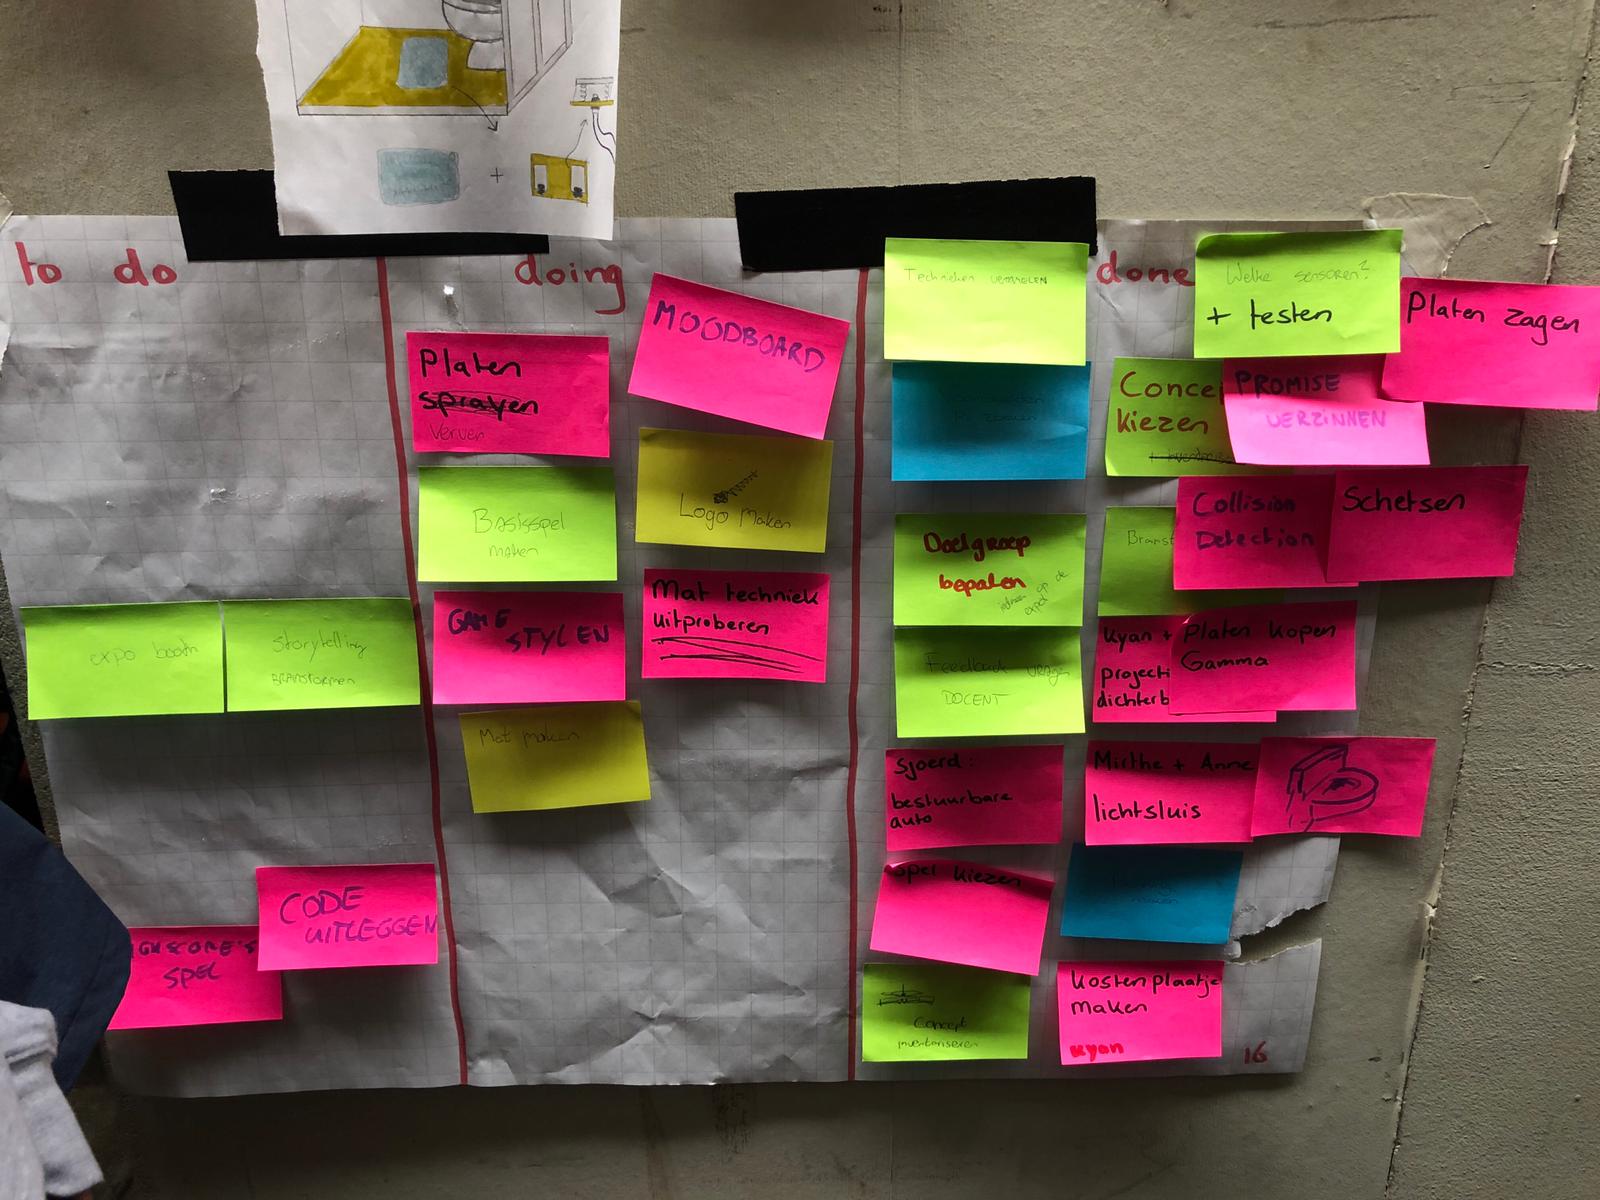 to do
expo booth
storytelling
BRAINSTORMEN
CODE
UITLEGGEN
SPEL
doing
Platen
sprayen
verven
Basisspel
maken
GAME
STYLEN
Mat maken
MOODBOARD
Logo maken
Mat techniek
uitproberen
done
Technieken
Doelgroep
bepalen
iedereen op de
expo!
Feedback
DOCENT
Sjoerd:
bestuurbare
auto
Spel kiezen
Concept
inventariseren
Welke sensoren?
+ testen
Platen zagen
Conce
kiezen
PROMISE
VERZINNEN
Brainst
Collision
Detection
Schetsen
Kyan +
projecti
dichterb
Platen kopen
Gamma
Mirthe + Anne
lichtsluis
maken
kostenplaatje
maken
kyan
16